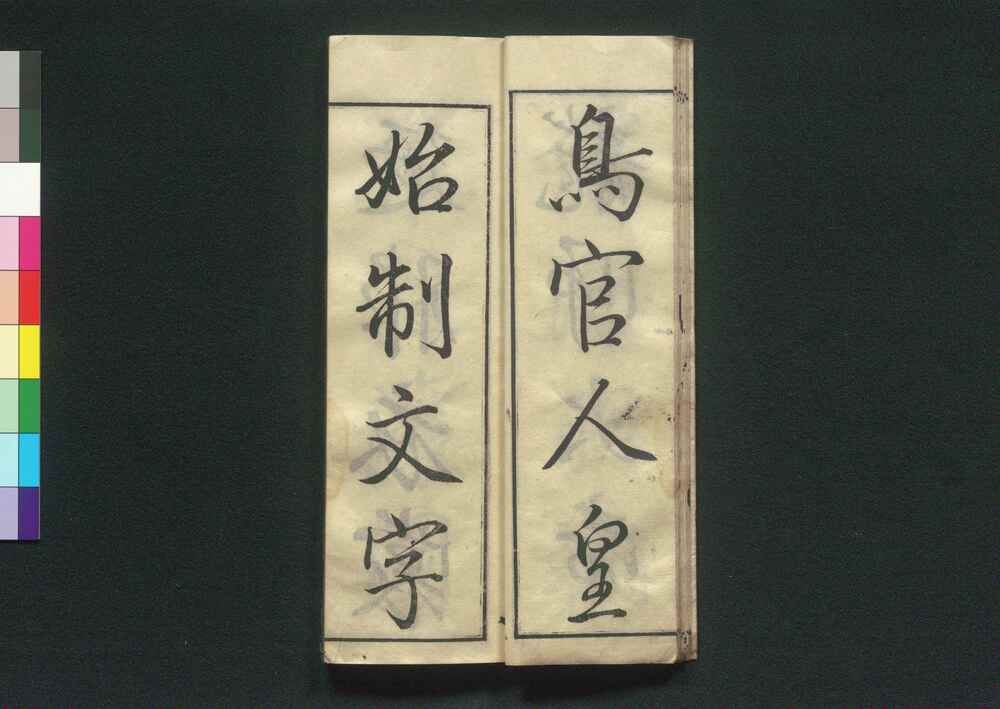 鳥官人皇
始制文字